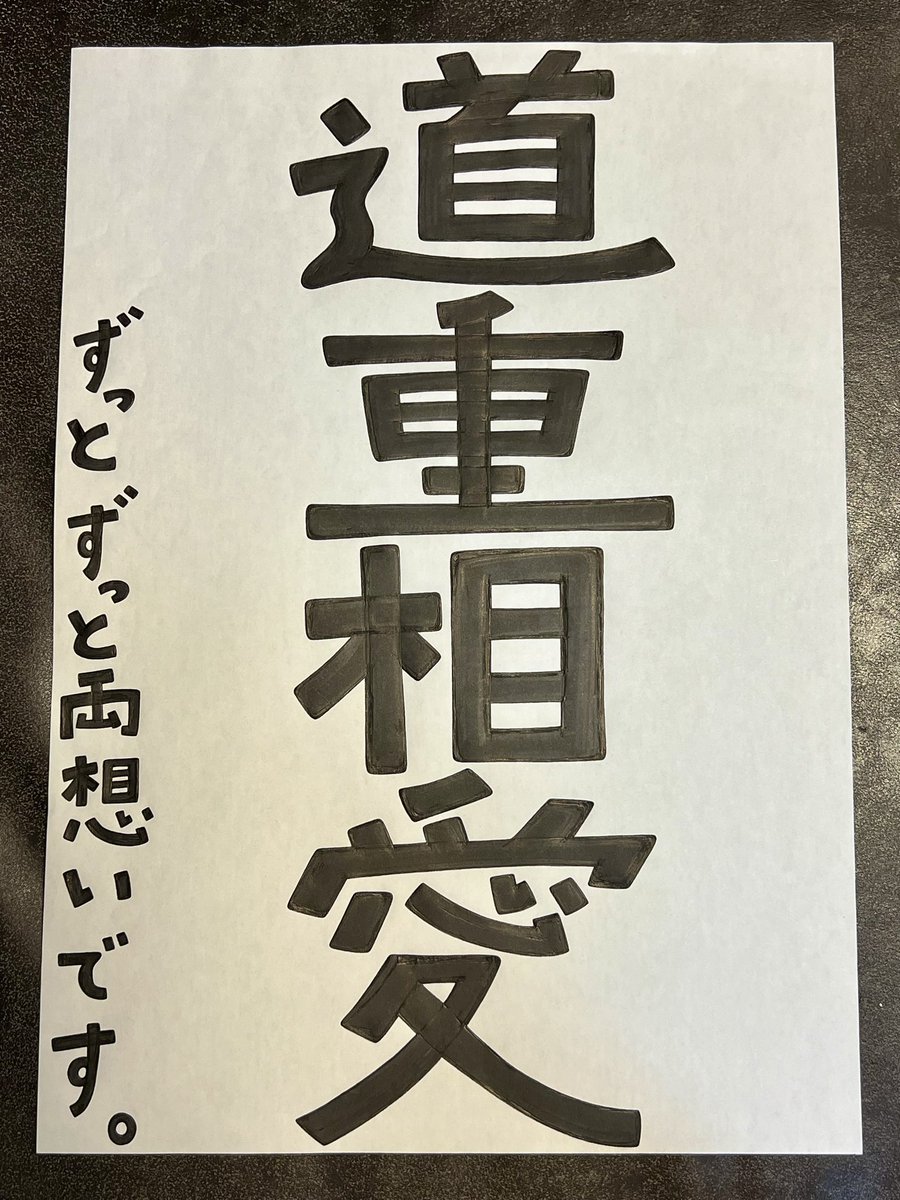 道重相愛
ずっとずっと両想いです。